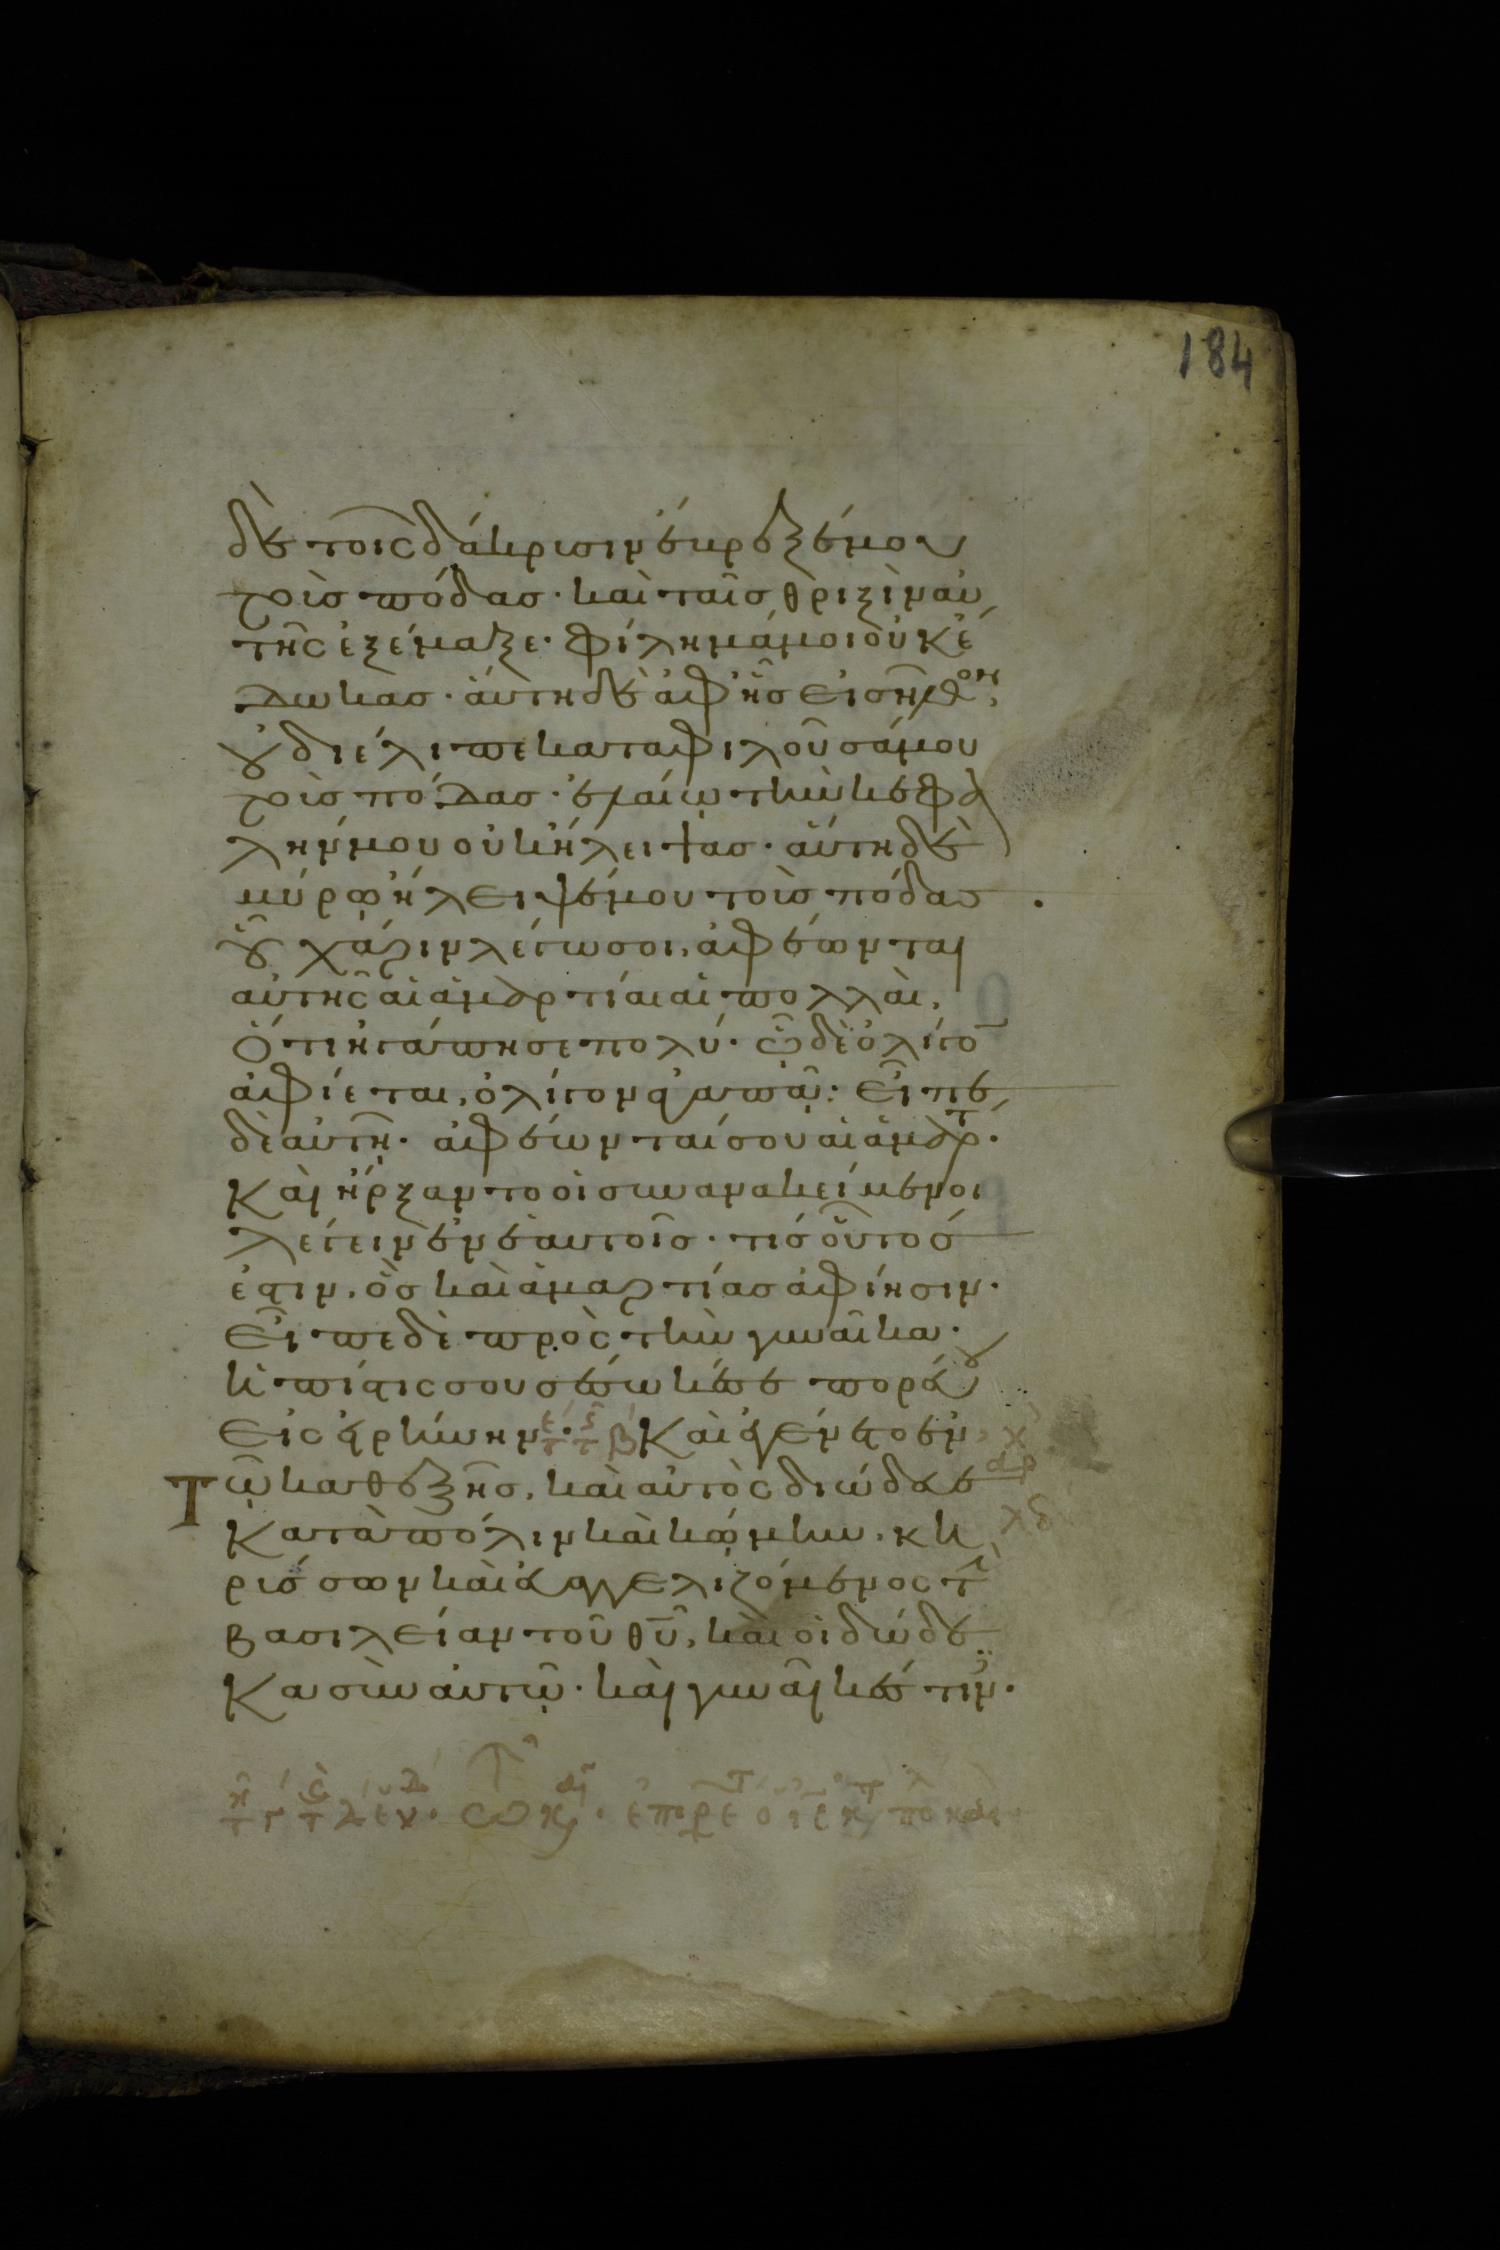 184
δὲ τοῖς δάκρυσιν ἔβρεξέ μου
τοὺς πόδας· καὶ ταῖς θριξὶν αὐ
τῆς ἐξέμαξε· φίλημά μοι οὐκ ἔ
δωκας· αὕτη δὲ ἀφ' ἧς εἰσῆλθον,
οὐ διέλιπε καταφιλοῦσά μου
τοὺς πόδας· ἐλαίῳ τὴν κεφα
λήν μου οὐκ ἤλειψας· αὕτη δὲ
μύρῳ ἤλειψέ μου τοὺς πόδας
οὗ χάριν λέγω σοι, ἀφέωνται
αὐτῆς αἱ ἁμαρτίαι αἱ πολλαὶ,
ὅτι ἠγάπησε πολύ· ᾧ δὲ ὀλίγο
ἀφίεται, ὀλίγον ἀγαπᾷ: εἶπε
δὲ αὐτῇ· ἀφέωνταί σου αἱ ἁμαρτ·
Καὶ ἤρξαντο οἱ συνανακείμενοι
λέγειν ἐν ἑαυτοῖς· τίς οὗτός
ἐστιν, ὃς καὶ ἁμαρτίας ἀφίησιν·
Εἶπε δὲ πρὸς τὴν γυναῖκα·
ἡ πίστις σου σέσωκέ σε πορεύου
εἰς εἰρήνην· Καὶ ἐγένετο ἐν
τῷ καθεξῆς, καὶ αὐτὸς διώδευε
κατὰ πόλιν καὶ κώμην, κη
ρύσσων καὶ εὐαγγελιζόμενος τὴ
βασιλείαν τοῦ θῦ, καὶ οἱ δώδε
κα σὺν αὐτῷ· καὶ γυναῖκές τιν·